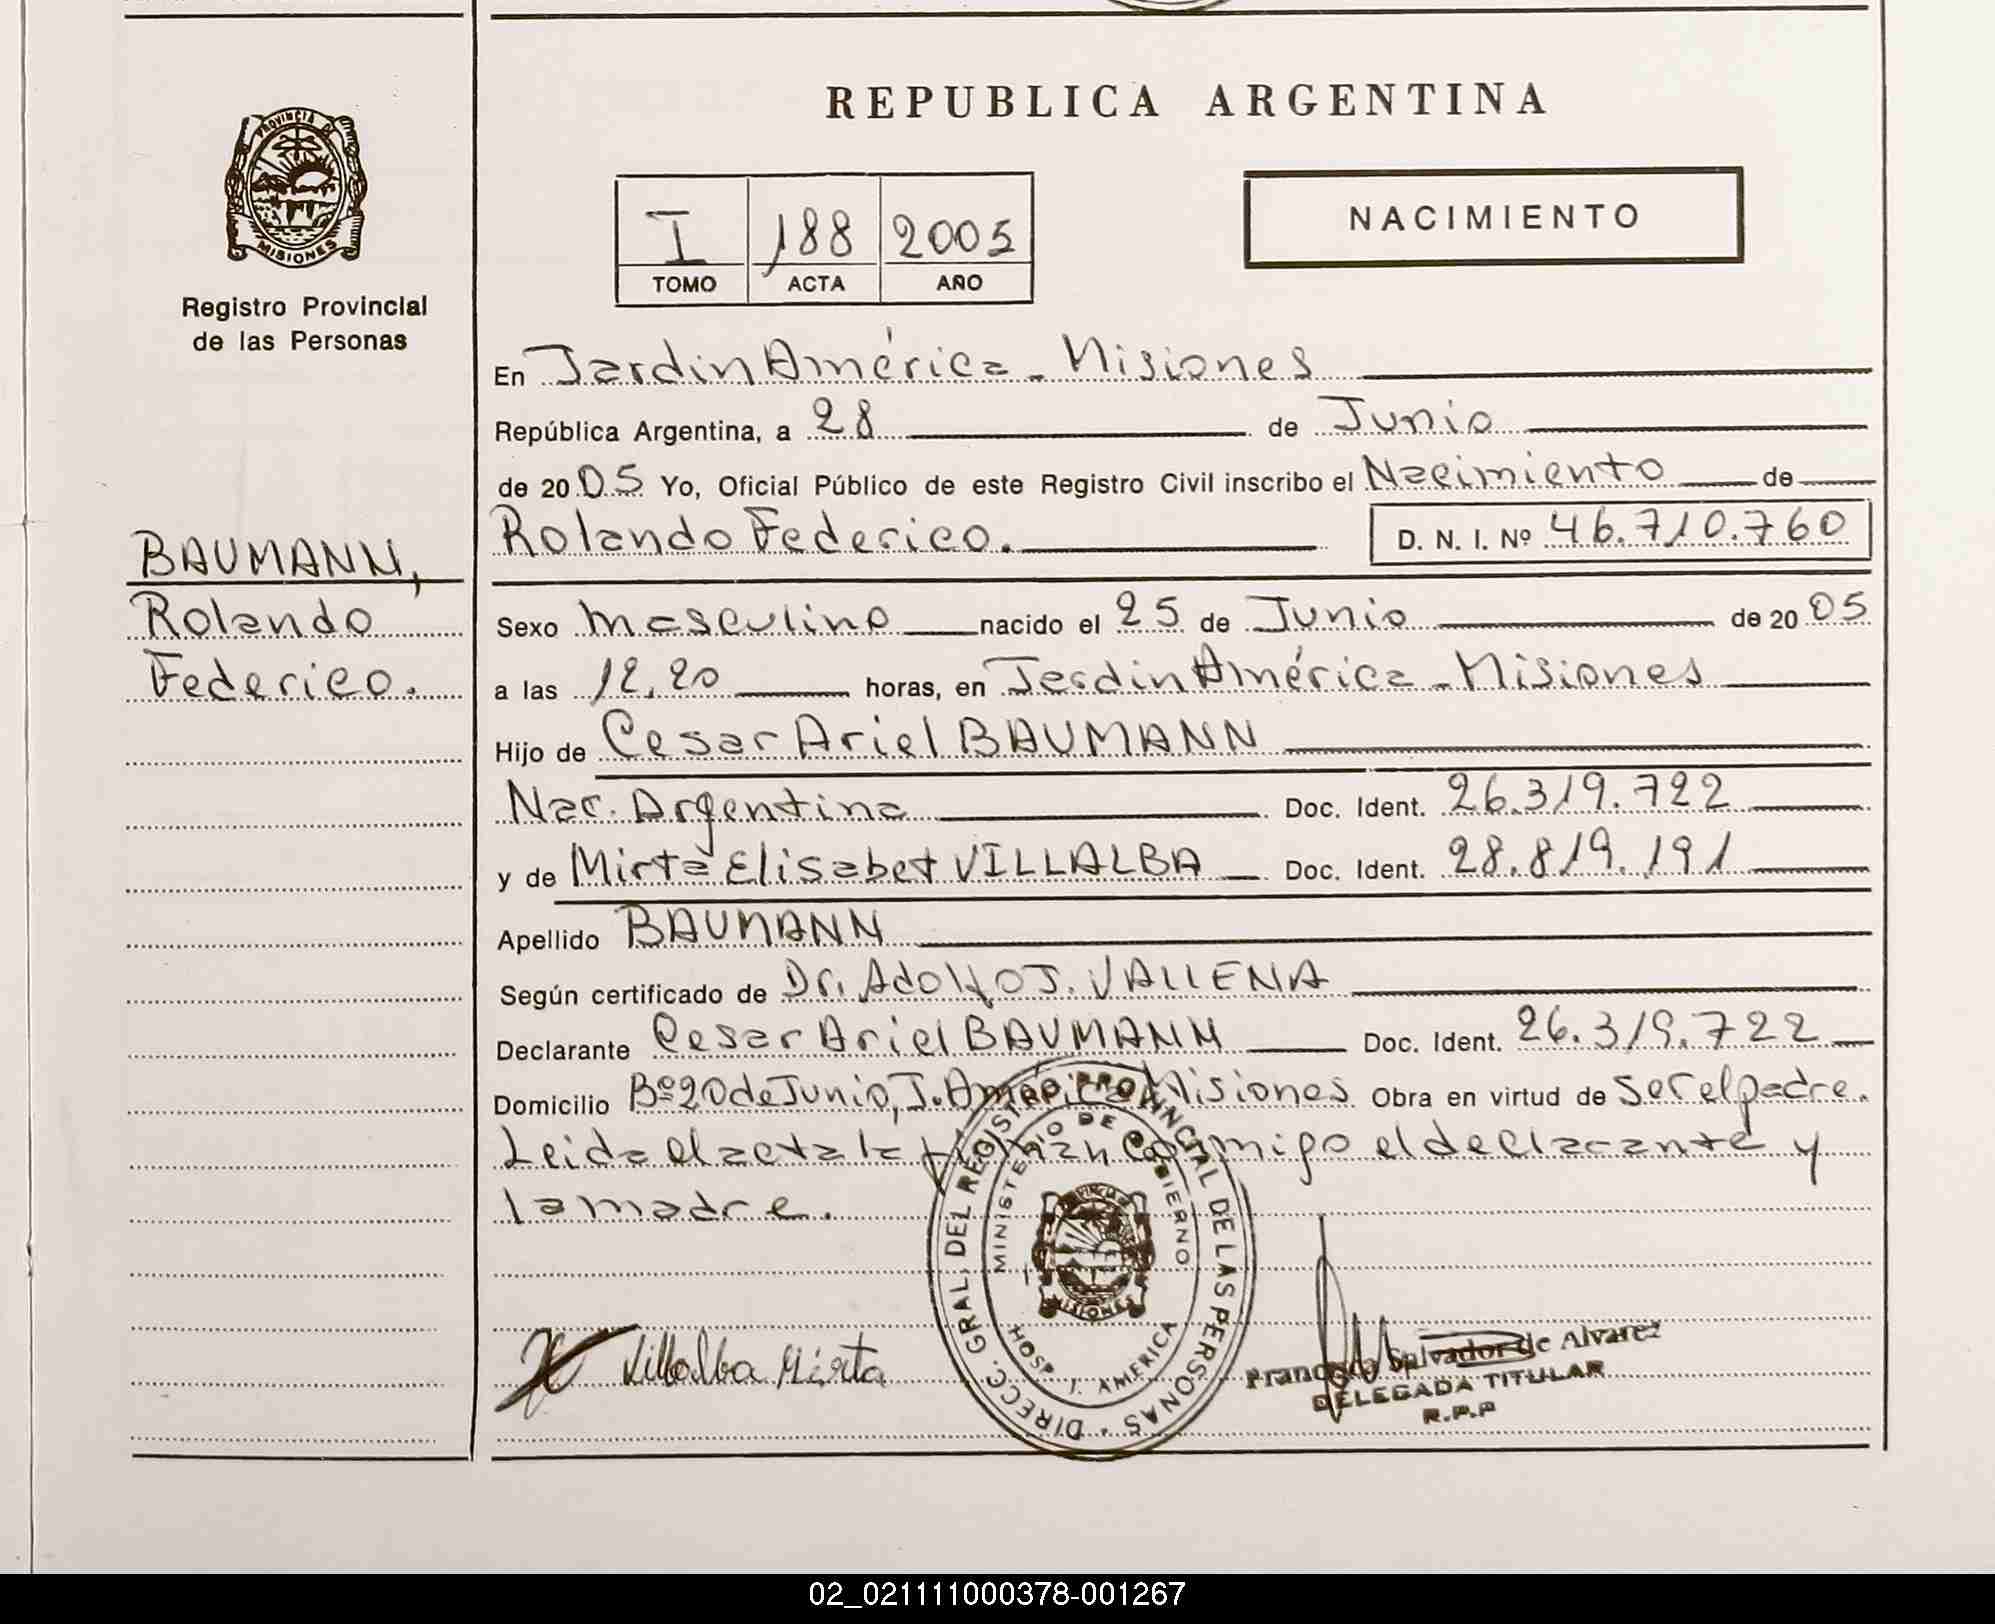 REPUBLICA ARGENTINA
PROVINCIA DE
MISIONES
Registro Provincial
de las Personas
I 188 2005
TOMO ACTA AÑO
NACIMIENTO
BAUMANN,
Rolando
Federico.
En Jardin América - Misiones
República Argentina, a 28 de Junio
de 2005 Yo, Oficial Público de este Registro Civil inscribo el Nacimiento de
Rolando Federico. D. N. I. Nº 46.710.760
Sexo masculino nacido el 25 de Junio de 2005
a las 12,20 horas, en Jardin América - Misiones
Hijo de Cesar Ariel BAUMANN
Nac. Argentina Doc. Ident. 26.319.722
y de Mirta Elisabet VILLALBA Doc. Ident. 28.819.191
Apellido BAUMANN
Según certificado de Dr. Adolfo J. VALLENA
Declarante Cesar Ariel BAUMANN Doc. Ident. 26.319.722
Domicilio Bº 20 de Junio, J. América Misiones Obra en virtud de ser el padre.
Leida el acta la firman conmigo el declarante y
la madre.
DIRECC. GRAL. DEL REGISTRO PROVINCIAL DE LAS PERSONAS
MINISTERIO DE GOBIERNO
MISIONES
HOSP. J. AMERICA
Villalba Mirta
Francisca Salvador de Alvarez
DELEGADA TITULAR
R.P.P
02_021111000378-001267